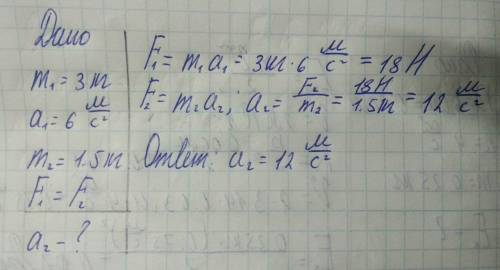 Дано
m₁ = 3 т
a₁ = 6 м/с²
m₂ = 1.5 т
F₁ = F₂
a₂ - ?
F₁ = m₁a₁ = 3т · 6 м/с² = 18 Н
F₂ = m₂a₂; a₂ = F₂/m₂ = 18Н/1.5т = 12 м/с²
Ответ: a₂ = 12 м/с²